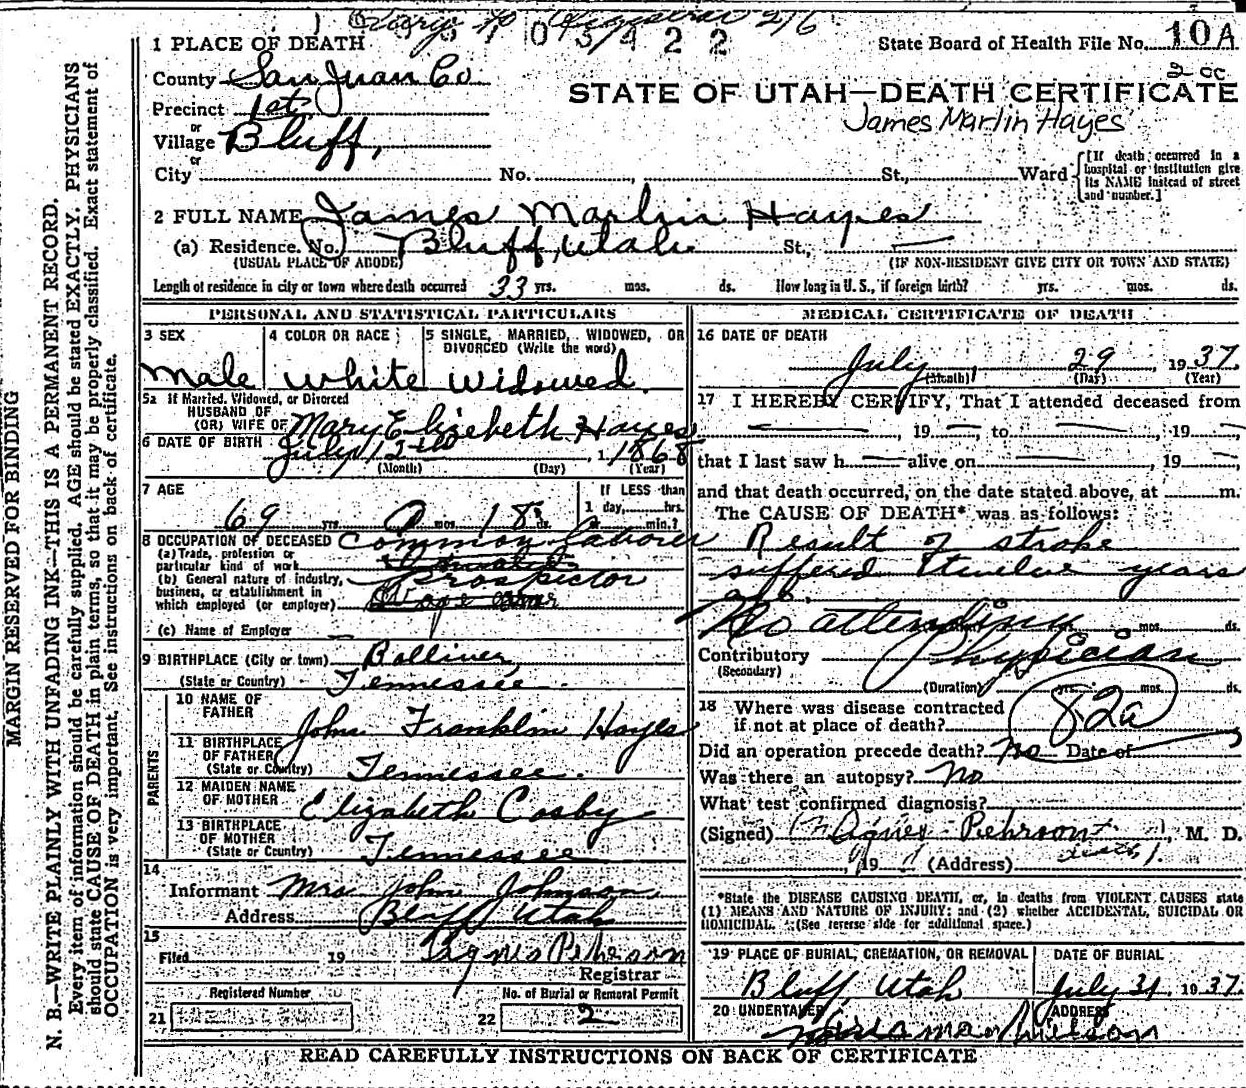 1 PLACE OF DEATH
State Board of Health File No. 10A
County San Juan Co
2 cc
STATE OF UTAH—DEATH CERTIFICATE
Precinct 1st
James Marlin Hayes
or
Village Bluff,
or
City No. , St., Ward
[If death occurred in a hospital or institution give its NAME instead of street and number.]
2 FULL NAME James Marlin Hayes
(a) Residence, No. Bluff, Utah St.,
(USUAL PLACE OF ABODE) (IF NON-RESIDENT GIVE CITY OR TOWN AND STATE)
Length of residence in city or town where death occurred 33 yrs. mos. ds. How long in U. S., if foreign birth? yrs. mos. ds.
PERSONAL AND STATISTICAL PARTICULARS
3 SEX
Male
4 COLOR OR RACE
White
5 SINGLE, MARRIED, WIDOWED, OR DIVORCED (Write the word)
Widowed.
5a If Married, Widowed, or Divorced
HUSBAND OF
(OR) WIFE OF Mary Elizebeth Hayes
6 DATE OF BIRTH July 12th 1868
(Month) (Day) (Year)
7 AGE
69 yrs. 0 mos. 18 ds.
If LESS than
1 day, hrs.
min.?
8 OCCUPATION OF DECEASED Common laborer
(a) Trade, profession or
particular kind of work
(b) General nature of industry, Prospector
business, or establishment in
which employed (or employer)
(c) Name of Employer
9 BIRTHPLACE (City or town) Bolliver,
(State or Country) Tennessee.
PARENTS
10 NAME OF
FATHER
John Franklin Hayes
11 BIRTHPLACE
OF FATHER
(State or Country) Tennessee.
12 MAIDEN NAME
OF MOTHER
Elizabeth Cosby
13 BIRTHPLACE
OF MOTHER
(State or Country) Tennessee
14
Informant Mrs John Johnson,
Address Bluff Utah
15
Filed 19 Agnes Pehrson
Registrar
Registered Number
21
No. of Burial or Removal Permit
22 2
MEDICAL CERTIFICATE OF DEATH
16 DATE OF DEATH
July 29 1937.
(Month) (Day) (Year)
17 I HEREBY CERTIFY, That I attended deceased from
, 19 to , 19
that I last saw h alive on , 19
and that death occurred, on the date stated above, at m.
The CAUSE OF DEATH* was as follows:
Result of stroke
suffered twelve years
ago.
No attending mos. ds.
Contributory Physician
(Secondary)
(Duration) yrs. mos. ds.
18 Where was disease contracted
if not at place of death?
82a
Did an operation precede death? No Date of
Was there an autopsy? No
What test confirmed diagnosis?
(Signed) Agnes Pehrson, M. D.
, 19 (Address)
*State the DISEASE CAUSING DEATH, or, in deaths from VIOLENT CAUSES state
(1) MEANS AND NATURE OF INJURY; and (2) whether ACCIDENTAL, SUICIDAL OR
HOMICIDAL. (See reverse side for additional space.)
19 PLACE OF BURIAL, CREMATION, OR REMOVAL
Bluff, Utah
DATE OF BURIAL
July 31, 1937.
20 UNDERTAKER
ADDRESS
READ CAREFULLY INSTRUCTIONS ON BACK OF CERTIFICATE
MARGIN RESERVED FOR BINDING
N. B.—WRITE PLAINLY WITH UNFADING INK—THIS IS A PERMANENT RECORD.
Every item of information should be carefully supplied. AGE should be stated EXACTLY. PHYSICIANS
should state CAUSE OF DEATH in plain terms, so that it may be properly classified. Exact statement of
OCCUPATION is very important. See instructions on back of certificate.